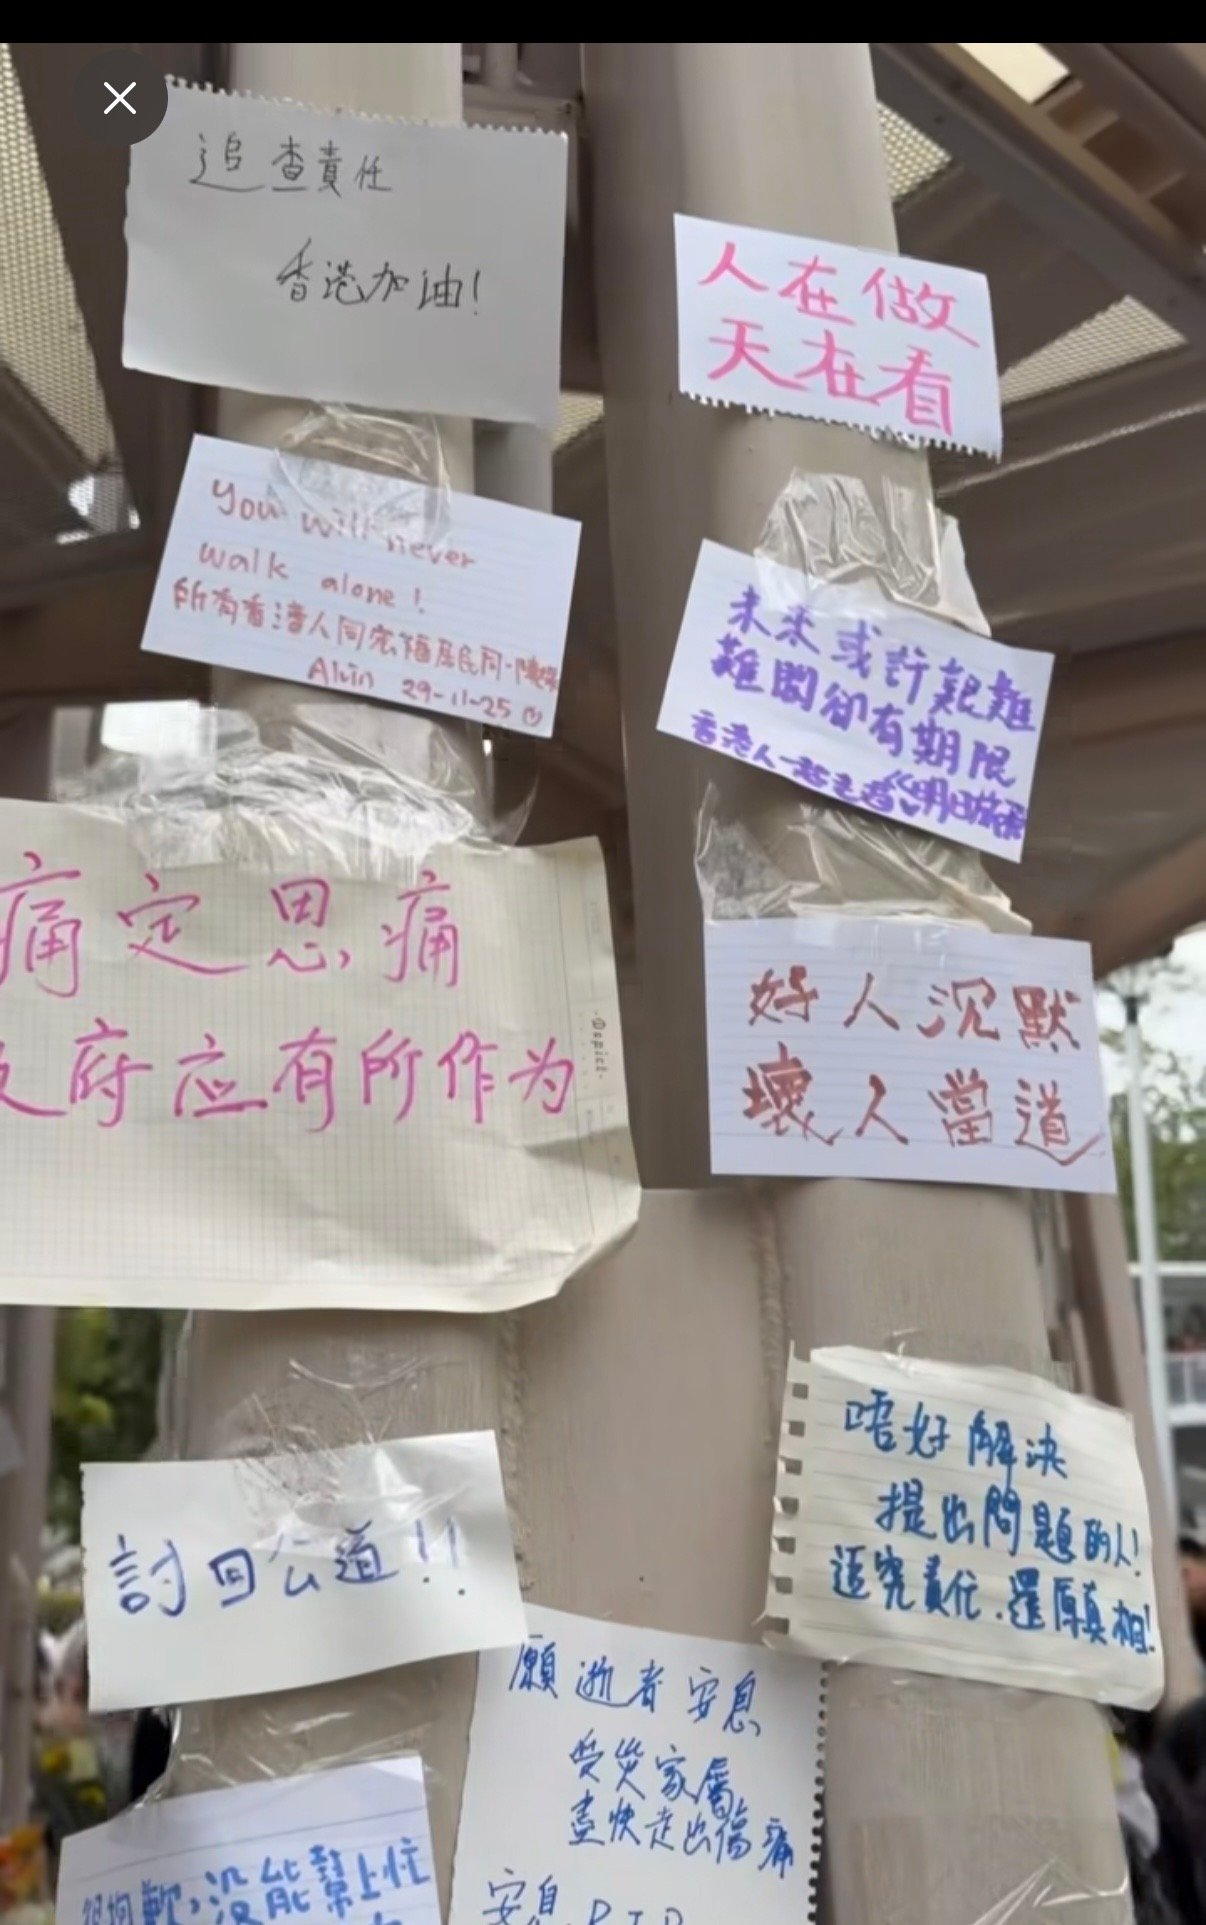 追查責任
香港加油!
人在做
天在看
You will never
walk alone!
所有香港人同宏福居民同一陣線
Alvin 29-11-25
未來或許艱難
難關卻有期限
香港人一起走過
痛定思痛
府应有所作为
好人沉默
壞人當道
討回公道!!
唔好解決
提出問題的人!
追究責任.還原真相!
願逝者安息
受災家屬
盡快走出傷痛
安息 R.I.P
很抱歉,沒能幫上忙